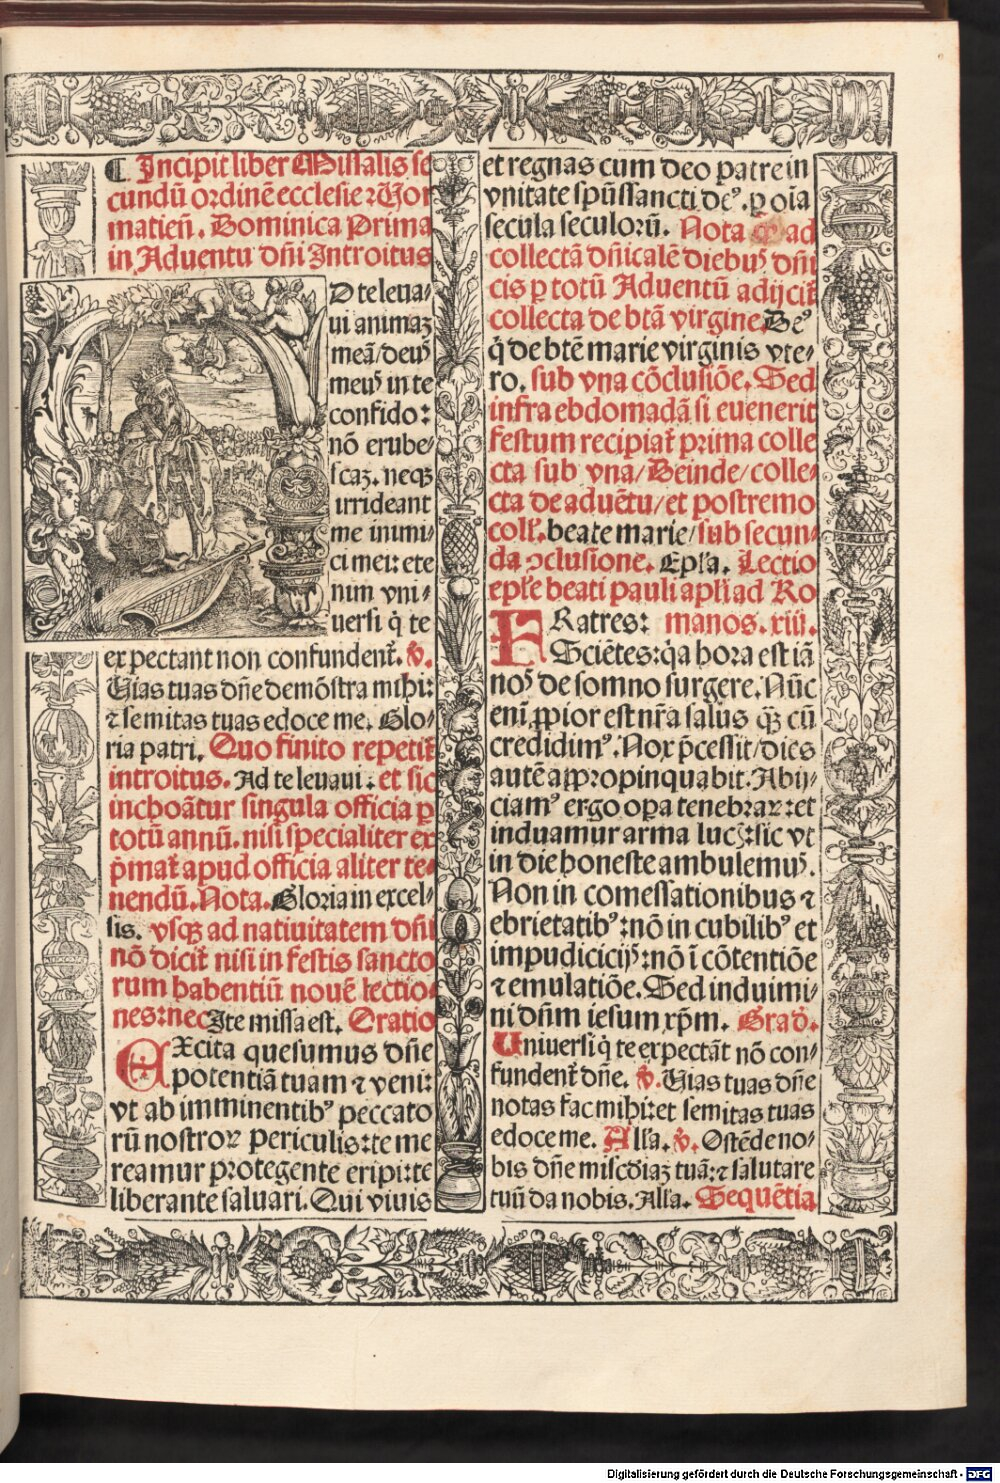 ¶ Incipit liber Missalis se
cundū ordinē ecclesie Wor
matien̄. Dominica Prima
in Aduentu dn̄i Introitus
AD te leua/
ui animaꝫ
meā/deꝰ
meꝰ in te
confido:
nō erube/
scaꝫ. neqꝫ
irrideant
me inimi/
ci mei: ete
nim vni/
uersi q̇ te
expectant non confundent̄. ℣.
Uias tuas dn̄e demōstra mihi:
⁊ semitas tuas edoce me. Glo/
ria patri. Quo finito repetit̄
introitus. Ad te leuaui. et sic
inchoātur singula officia ꝑ
totū annū. nisi specialiter ex
p̄mat̄ apud officia aliter te/
nendū. Nota. Gloria in excel/
sis. vsqꝫ ad natiuitatem dn̄i
nō dicit̄ nisi in festis sancto
rum habentiū nouē lectio/
nes: nec Ite missa est. Oratio
EXcita quesumus dn̄e
potentiā tuam ⁊ veni:
vt ab imminentibꝰ peccato
rū nostroꝝ periculis: te me
reamur protegente eripi: te
liberante saluari. Qui viuis
et regnas cum deo patre in
vnitate spūssancti deꝰ. ꝑ oīa
secula seculorū. Nota ꝙ ad
collectā dn̄icalē diebꝰ dn̄i
cis ꝑ totū Aduentū adijcit̄
collecta de btā virgine. Deꝰ
q̇ de btē marie virginis vte/
ro. sub vna cōclusiōe. Sed
infra ebdomadā si euenerit
festum recipiat̄ prima colle
cta sub vna/Deinde/colle/
cta de aduētu/et postremo
coll̄. beate marie/sub secun/
da ꝯclusione. Ep̄la. Lectio
ep̄le beati pauli apl̄i ad Ro
FRatres: manos. xiii.
Sciētes: q̇a hora est iā
nos de somno surgere. Nūc
eni ꝓpior est nr̄a salus qꝫ cū
credidimꝰ. Nox p̄cessit/dies
autē appropinquabit. Abij/
ciamꝰ ergo oꝑa tenebraꝝ: et
induamur arma luc̄: sic vt
in die honeste ambulemꝰ.
Non in comessationibus ⁊
ebrietatibꝰ: nō in cubilibꝰ et
impudicicijs: nō ī cōtentiōe
⁊ emulatiōe. Sed induimi/
ni dn̄m iesum xp̄m. Grad̄.
Uniuersi q̇ te expectāt nō con/
fundent̄ dn̄e. ℣. Uias tuas dn̄e
notas fac mihi: et semitas tuas
edoce me. All̄a. ℣. Ostēde no/
bis dn̄e mis̄cdiaꝫ tuā: ⁊ salutare
tuū da nobis. All̄a. Sequētia
Digitalisierung gefördert durch die Deutsche Forschungsgemeinschaft - DFG